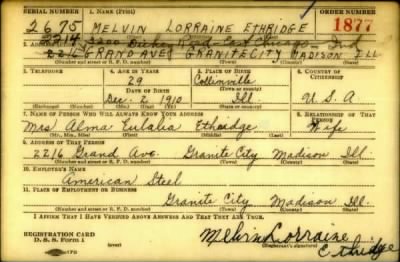 SERIAL NUMBER 1. NAME (Print) ORDER NUMBER
2675 MELVIN LORRAINE ETHRIDGE 1877
2. ADDRESS (Print)
2214 Dickey Road East Chicago - Ind
2216 GRAND AVE GRANITE CITY MADISON ILL
3. TELEPHONE 4. AGE IN YEARS 5. PLACE OF BIRTH 6. COUNTRY OF CITIZENSHIP
29 Collinsville
DATE OF BIRTH
Dec. 2, 1910 Ill U.S.A
(Exchange) (Number) (Mo.) (Day) (Yr.) (State or country)
7. NAME OF PERSON WHO WILL ALWAYS KNOW YOUR ADDRESS 8. RELATIONSHIP OF THAT PERSON
Mrs Alma Eulalia Ethridge Wife
(Mr., Mrs., Miss) (First) (Middle) (Last)
9. ADDRESS OF THAT PERSON
2216 Grand Ave. Granite City Madison Ill.
(Number and street or R. F. D. number) (Town) (County) (State)
10. EMPLOYER'S NAME
American Steel
11. PLACE OF EMPLOYMENT OR BUSINESS
Granite City Madison Ill.
(Number and street or R. F. D. number) (Town) (County) (State)
I AFFIRM THAT I HAVE VERIFIED ABOVE ANSWERS AND THAT THEY ARE TRUE.
REGISTRATION CARD
D. S. S. Form 1
Melvin Lorraine
(Registrant's signature)
Ethridge